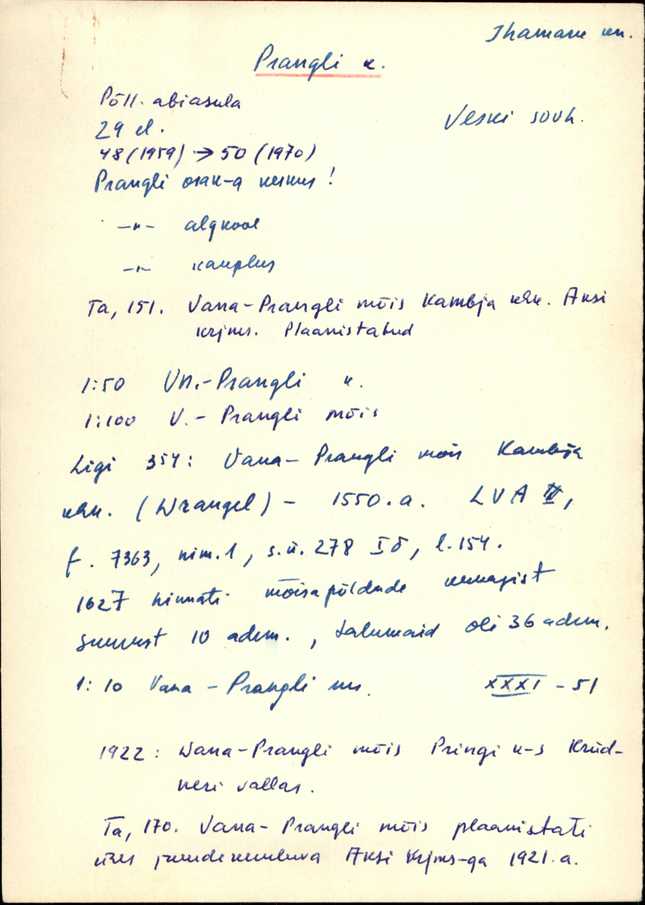 Ihamaru kn.
Prangli k.
Põll. abiasula
29 el.
Veski sovh.
48 (1959) → 50 (1970)
Prangli osak-a keskus!
-"- algkool
-"- kauplus
Ta, 151. Vana-Prangli mõis Kambja khk. Aksi
krjms. Plaanistatud
1:50 Vn.-Prangli k.
1:100 V.- Prangli mõis
Ligi 354: Vana- Prangli mõis Kambja
khk. (Wrangel) - 1550.a. LVA
f. 7363, nim.1, s.ü. 278 I δ, l.154.
1627 hinnati mõisapõldude kunagist
suurust 10 adrm., talumaid oli 36 adrm.
1:10 Vana - Prangli ms. XXXI - 51
1922: Wana-Prangli mõis Pringi k-s Krüd-
neri vallas.
Ta, 170. Vana- Prangli mõis plaanistati
ühes juurdekuuluva Aksi krjms-ga 1921.a.